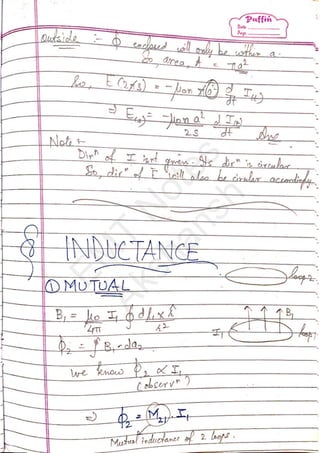 Puffin
Date
Page
Outside :- ϕ enclosed will only be within a.
So, area, A = πa²
So, E (2πs) = -μ₀n π(a²) d/dt I(t)
⇒ E(s) = -μ₀n a²/2s d I(t)/dt Ans
Note :-
Dirⁿ of I isn't given. Its dirⁿ is circular
So, dirⁿ of E will also be circular accordingly.
INDUCTANCE
① MUTUAL
loop 2
B₁ = μ₀/4π I₁ ∮ dl₁ × r̂/r²
B₁
I₁
loop 1
ϕ₂ = ∮ B₁ · da₂
we know ϕ₂ ∝ I₁
(observⁿ)
⇒ ϕ₂ = M₂₁ . I₁
Mutual inductance of 2 loops.